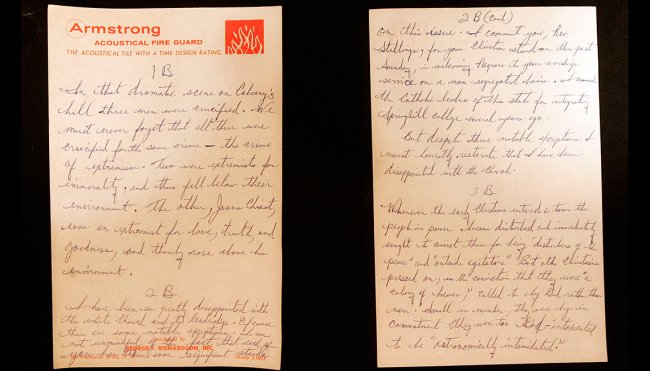 Armstrong
ACOUSTICAL FIRE GUARD
THE ACOUSTICAL TILE WITH A TIME DESIGN RATING
1 B
In that dramatic scene on Calvary's
hill three men were crucified. We
must never forget that all three were
crucified for the same crime — the crime
of extremism. Two were extremists for
immorality, and thus fell below their
environment. The other, Jesus Christ,
was an extremist for love, truth and
goodness, and thereby rose above his
environment.
2 B
I have been so greatly disappointed with
the white Church and its leadership. Of course
there are some notable exceptions. I am
not unmindful of the fact that each of
you has taken some significant stands
GEORGE F. RICHARDSON, INC.
2 B (cont)
on this issue. I commend you, Rev.
Stallings, for your Christian stand on this past
Sunday, in welcoming Negroes to your worship
service on a non-segregated basis. I commend
the Catholic leaders of this state for integrating
Springhill college several years ago.
But despite these notable exceptions I
must honestly reiterate that I have been
disappointed with the Church.
3 B
Whenever the early Christians entered a town the
people in power became disturbed and immediately
sought to convict them for being "disturbers of the
peace" and "outside agitators." But the Christians
pressed on, in the conviction that they were "a
colony of heaven," called to obey God rather than
man. Small in number, they were big in
commitment. They were too God-intoxicated
to be "astronomically intimidated."